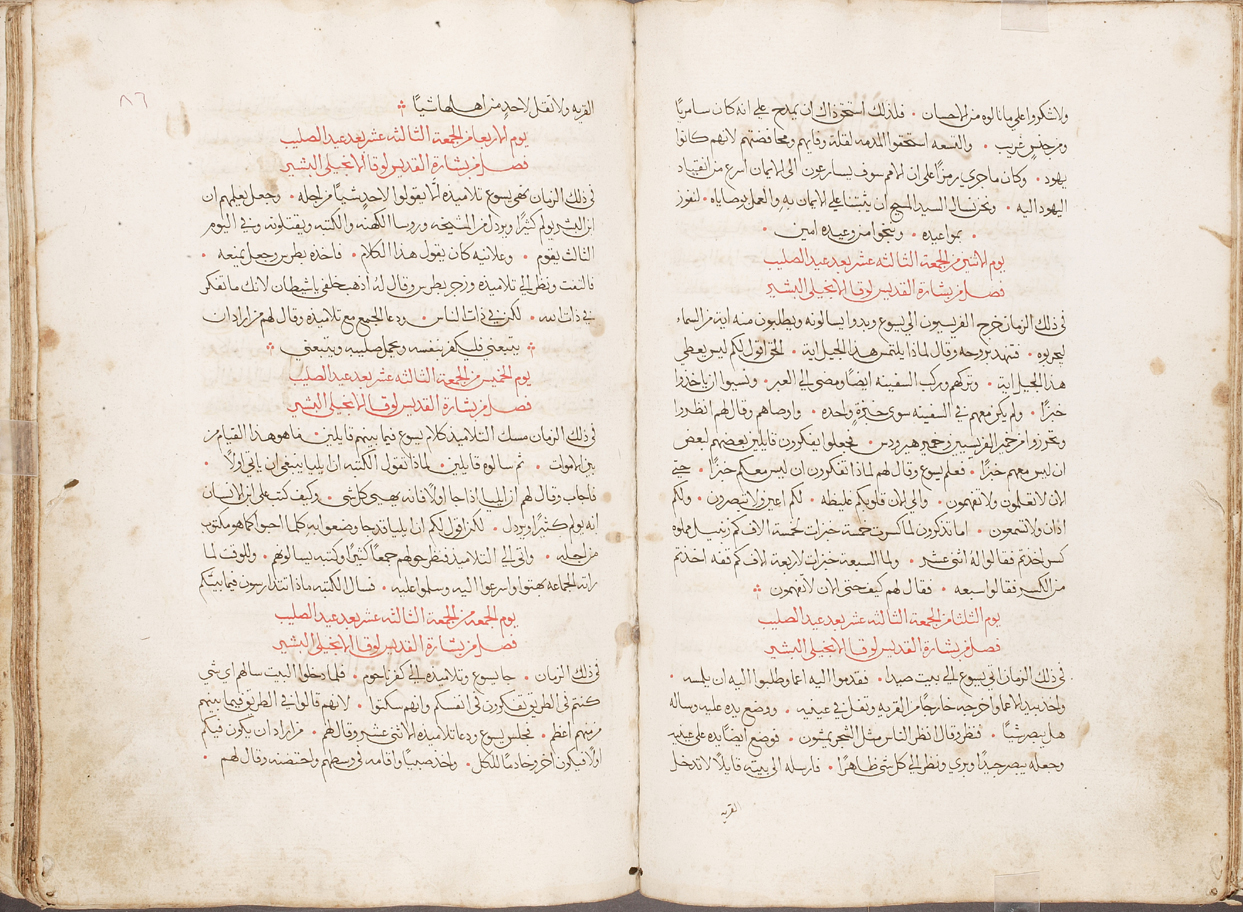 ولا شكروا على ما نالوه من الاحسان • فلذلك استحق ذاك ان يمدح على انه كان سامريًا
ومن جنسٍ غريب • والتسعه استحقوا المذمه لقلة وفايهم ومحافضتهم لانهم كانوا
يهود • وكان ما جري يرمزًا على ان الامم سوف يسارعون الى الايمان اسرع من انقياد
اليهود اليه • ونحن نسال السيد المسيح ان يثبتنا على الايمان بهِ والعمل بوصاياه • لنفوز
• بمواعيده • وننجوا من وعيده امين •
يوم الاثنين من الجمعة الثالثه عشر بعد عيد الصليب
فصل من بشارة القديس لوقا الانجيلي البشير
في ذلك الزمان خرج الفريسيون الى يسوع وبدوا يسالونه ويطلبون منه اية من السماء
ليجربوه • فتنهد بروحه وقال لماذا يلتمس هذا الجيل اية • الحق اقول لكم ليس يعطي
هذا الجيل اية • وتركهم وركب السفينه ايضًا ومضى الى العبر • ونسيوا ان ياخذوا
خبزًا • ولم يكن معهم في السفينه سوى خبزةٍ واحده • واوصاهم وقال لهم انظروا
وتحرزوا من خمير الفريسيين وخمير هيرودس • فجعلوا يفكرون قايلين بعضهم لبعض
ان ليس معهم خبزًا • فعلم يسوع وقال لهم لماذا تفكرون ان ليس معكم خبزًا • حتي
الان لا تعلمون ولا تفهمون • والى الان قلوبكم غليظه • لكم اعين ولا تبصرون • ولكم
اذان ولا تسمعون • اما تذكرون لما كسرت خمسة خبزات لخمسة الاف كم زنبيل مملوه
كسر اخذتم فقالوا لهُ اثنى عشر • ولما السبعه خبزات لاربعة الاف كم قفه اخذتم
من الكسر فقالوا سبعه • فقال لهم كيف حتى الان لا تفهمون
يوم الثلثا من الجمعة الثالثه عشر بعد عيد الصليب
فصل من بشارة القديس لوقا الانجيلي البشير
في ذلك الزمان اتى يسوع الى بيت صيدا • فقدموا اليه اعما وطلبوا اليه ان يلمسه •
واخذ بيد الاعما واخرجه خارجًا من القريه وتفل في عينيه • ووضع يده عليه وساله
هل يبصر شيًا • فنظر وقال انظر الناس مثل الشجر يمشون • فوضع ايضًا يده على عينيه
وجعله يبصر جيدًا وبري ونظر الى كل شي ظاهرًا • فارسله الى بيته قايلًا لا تدخل
القريه
٨٦
القريه ولا تقل لاحدٍ من اهلها شيًا
يوم الاربعا من الجمعة الثالثه عشر بعد عيد الصليب
فصل من بشارة القديس لوقا الانجيلي البشير
في ذلك الزمان نهى يسوع تلاميذه الّا يقولوا لاحدٍ شيًا من اجله • وجعل يعلمهم ان
ابن البشر يولم كثيرًا ويرذل من المشيخه وروسا الكهنه والكتبه ويقتلونه وفي اليوم
الثالث يقوم • وعلانيه كان يقول هذا الكلام • فاخذه بطرس وجعل يمنعه •
فالتفت ونظر الى تلاميذه وزجر بطرس وقال لهُ اذهب خلفي ياشيطان لانك ما تفكر
في ذات الله • لكن في ذات الناس • ودعا الجمع مع تلاميذه وقال لهم من اراد ان
يتبعني فليكفر بنفسه ويحمل صليبه ويتبعني
يوم الخميس من الجمعة الثالثه عشر بعد عيد الصليب
فصل من بشارة القديس لوقا الانجيلي البشير
في ذلك الزمان مسك التلاميذ كلام يسوع فيما بينهم قايلين • ما هو هذا القيام من
بين الاموات • ثم سالوه قايلين • لماذا تقول الكتبه ان ايليا ينبغي ان ياتي اولًا •
فاجاب وقال لهم ان ايليا اذا جا اولًا فانه يهيي كل شي • وكيف كتب على ابن الانسان
انه يولم كثيرًا ويرذل • لكن اقول لكم ان ايليا قد جا وصنعوا به كلما احبوا كما هو مكتوب
من اجله • واتى الى التلاميذ فنظر حولهم جمعًا كثيرًا وكتبه يسالوهم • وللوقت لما
راته الجماعه بهتوا واسرعوا اليه وسلموا عليه • فسال الكتبه ماذا تتدارسون فيما بينكم
يوم الجمعه من الجمعة الثالثه عشر بعد عيد الصليب
فصل من بشارة القديس لوقا الانجيلي البشير
في ذلك الزمان • جا يسوع وتلاميذه الى كفرناحوم • فلما دخلوا البيت سالهم اي شي
كنتم في الطريق تفكرون في انفسكم وانهم سكتوا • لانهم قالوا في الطريق فيما بينهم
من منهم اعظم • فجلس يسوع ودعا تلاميذه الاثني عشر وقال لهم • من اراد ان يكون فيكم
اولًا فيكون اخر وخادمًا للكل • واخذ صبيًا واقامه في وسطهم واحتضنه وقال لهم •